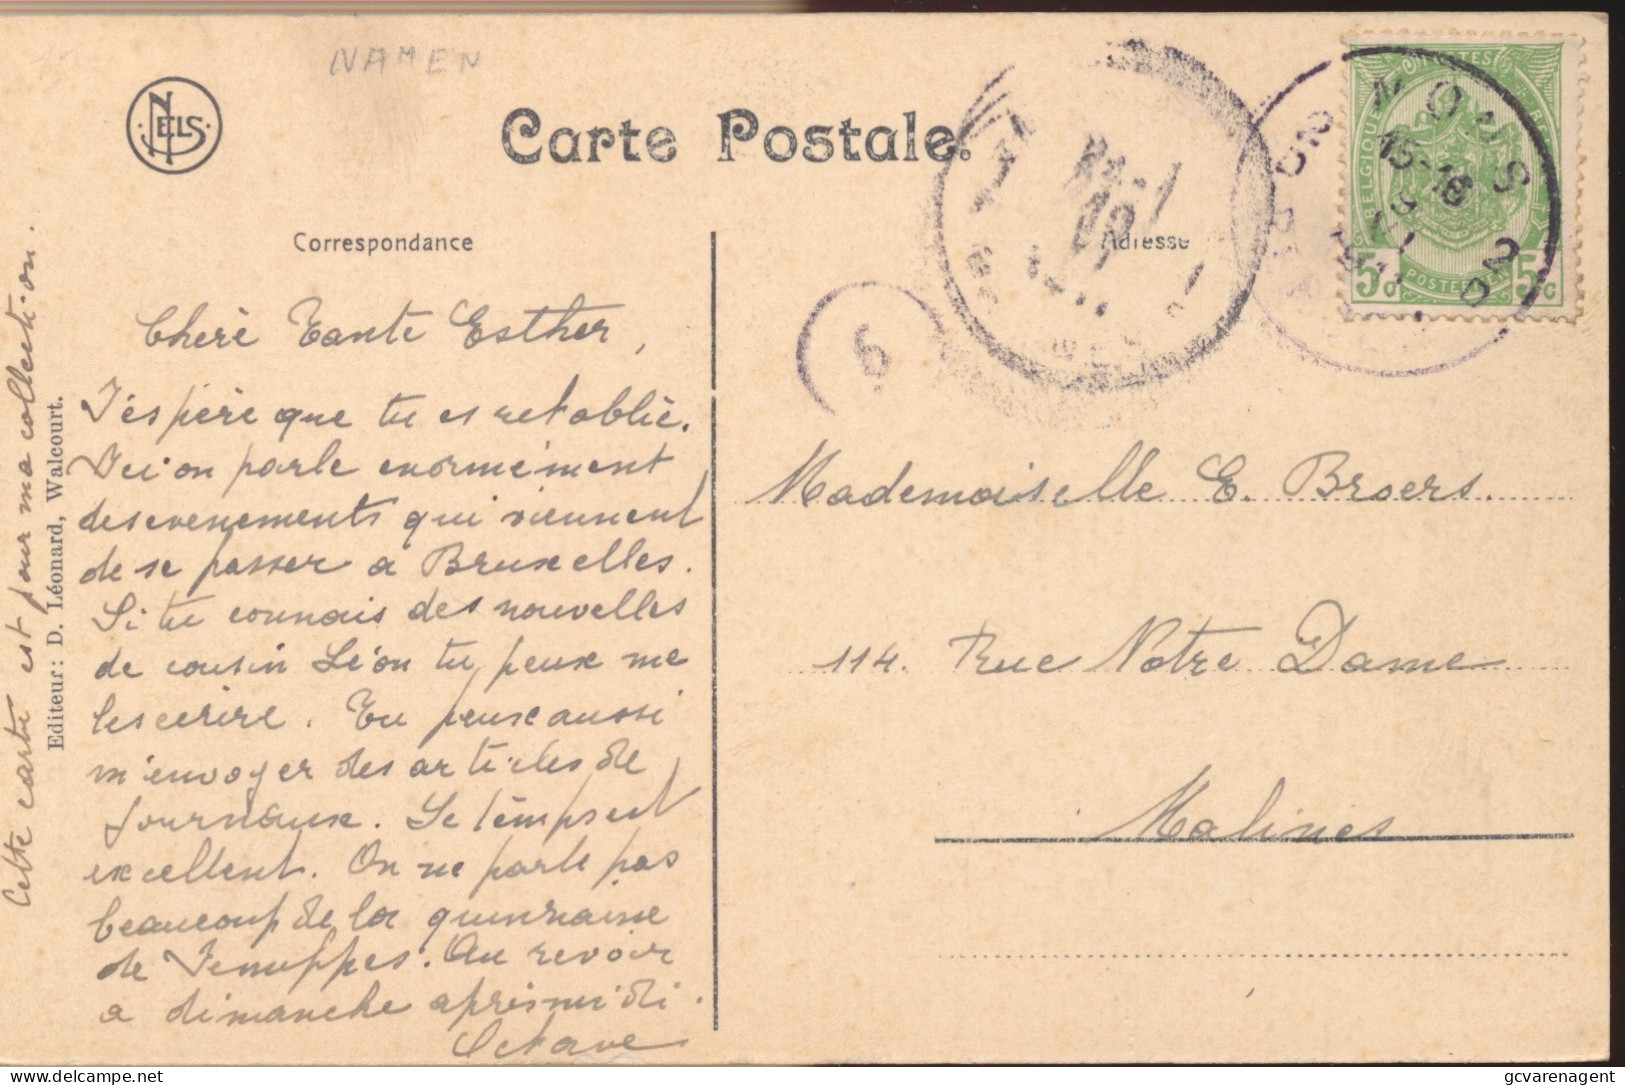 NAMEN
NELS
Carte Postale.
Correspondance
Adresse
BELGIQUE
POSTES
5c 5c
MONS
15-16
1911
2
6
Chère Tante Esther,
J'éspère que tu es retablie.
Ici on parle enormément
des evenements qui viennent
de se passer a Bruxelles.
Si tu connais des nouvelles
de cousin Léon tu peux me
les ecrire. Tu peux aussi
m'envoyer des articles de
journaux. Le temps est
excellent. On ne parle pas
beaucoup de la quinzaine
de Jemappes. Au revoir
a dimanche après midi.
Octave
Cette carte est pour ma collection.
Editeur: D. Léonard, Walcourt.
Mademoiselle E. Broers.
114. Rue Notre Dame
Malines
gcvarenagent